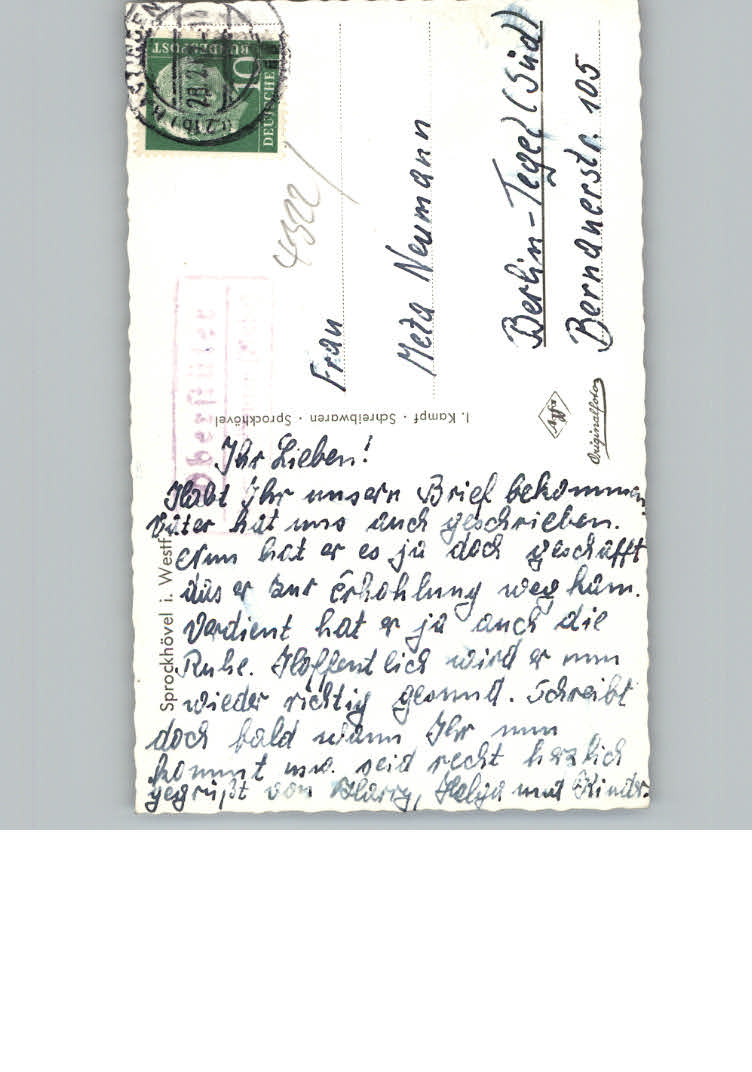 Ihr Lieben!
Habt Ihr unsern Brief bekommen
Vater hat uns auch geschrieben.
Nun hat er es ja doch geschafft
das er zur Erhohlung weg kam.
Verdient hat er ja auch die
Ruhe. Hoffentlich wird er nun
wieder richtig gesund. Schreibt
doch bald wann Ihr nun
kommt usw. seid recht herzlich
gegrüßt von Harry, Helga und Kinder.
Sprockhövel i. Westf.
I. Kampf · Schreibwaren · Sprockhövel
Agfa
Originalfoto
Frau
Meta Neumann
Berlin-Tegel (Süd)
Bernauerstr. 105
4322/
Oberstüter
DEUTSCHE
BUNDESPOST
10